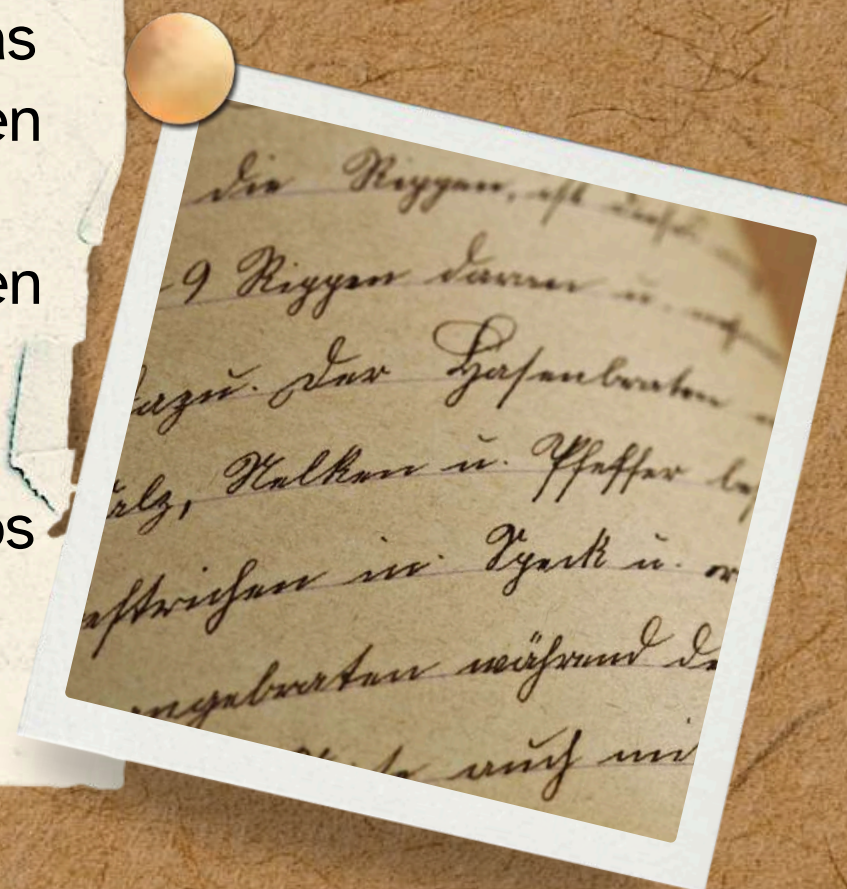 as
en
en
os
die Rippen, ist
-9 Rippen daran u.
dazu. Der Hasenbraten
Salz, Nelken u. Pfeffer
estrichen in Speck u.
angebraten während de
auch mi